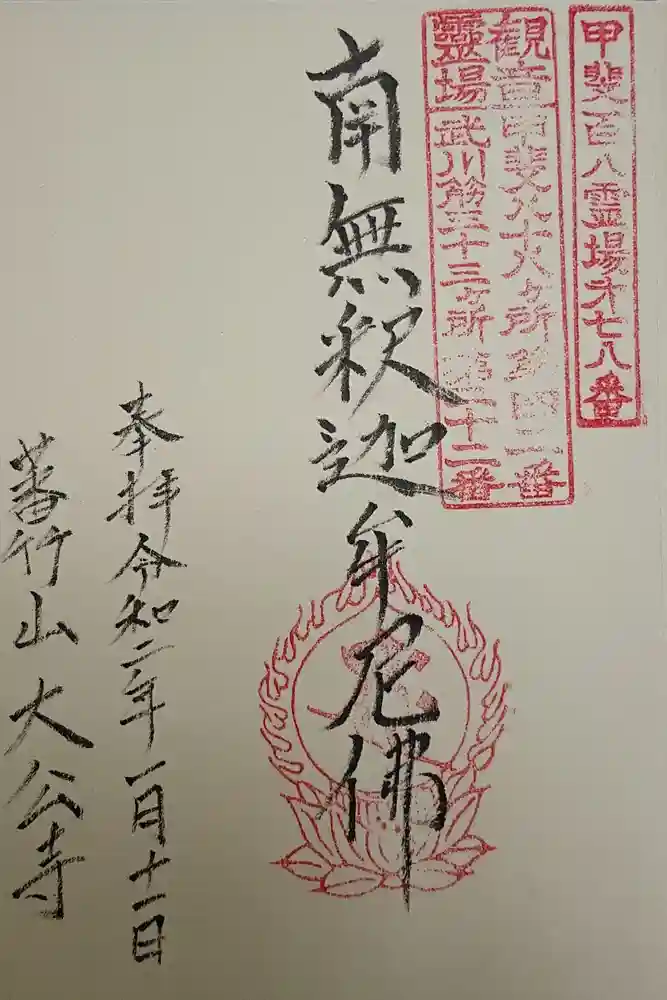 甲斐百八霊場第七八番
観音甲斐八十八ヶ所第四二番
靈場武川筋三十三ヶ所第二十二番
南無釈迦牟尼佛
奉拝令和二年一月十一日
蕃行山大公寺